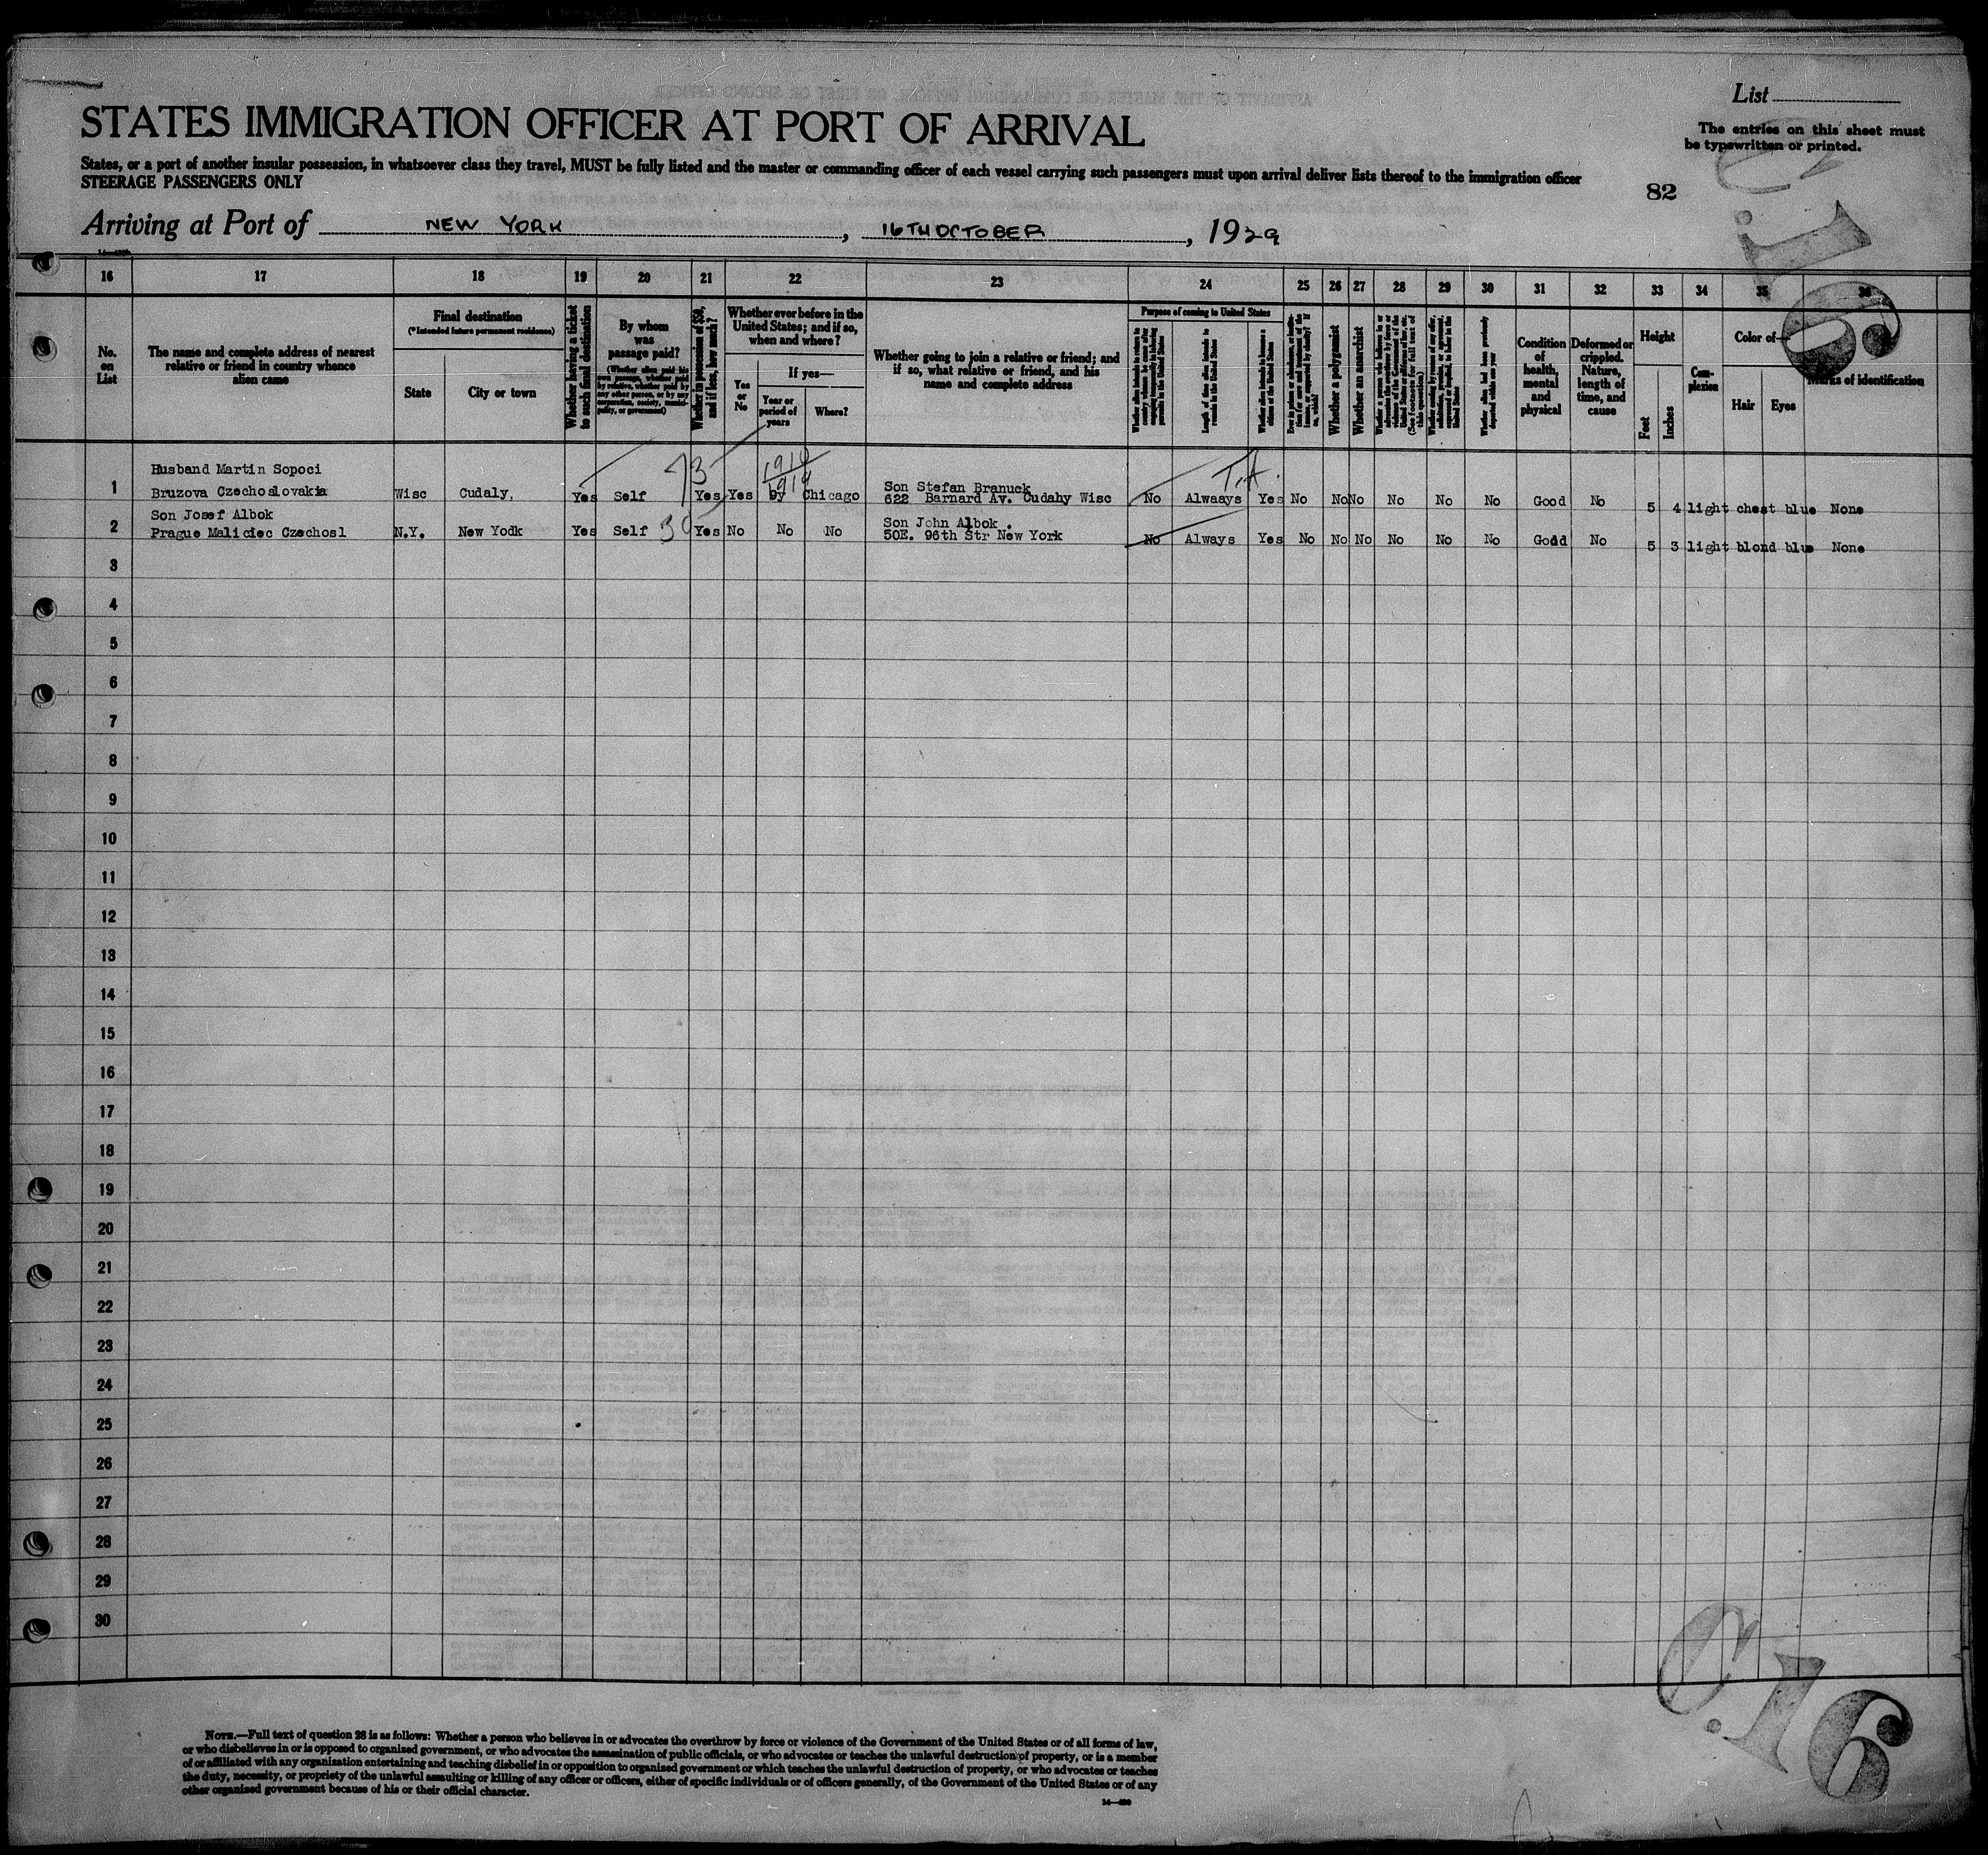 List
STATES IMMIGRATION OFFICER AT PORT OF ARRIVAL
The entries on this sheet must
be typewritten or printed.
States, or a port of another insular possession, in whatsoever class they travel, MUST be fully listed and the master or commanding officer of each vessel carrying such passengers must upon arrival deliver lists thereof to the immigration officer
STEERAGE PASSENGERS ONLY
82
Arriving at Port of NEW YORK, 16TH OCTOBER, 1929
16 17 18 19 20 21 22 23 24 25 26 27 28 29 30 31 32 33 34 35 36
No.
on
List
The name and complete address of nearest
relative or friend in country whence
alien came
Final destination
(*Intended future permanent residence)
State
City or town
Whether having a ticket
to such final destination
By whom
was
passage paid?
(Whether alien paid his
own passage, whether paid
by relative, whether paid by
any other person, or by any
corporation, society, munici-
pality, or government)
Whether in possession of $50,
and if less, how much?
Whether ever before in the
United States; and if so,
when and where?
Yes
or
No
If yes—
Year or
period of
years
Where?
Whether going to join a relative or friend; and
if so, what relative or friend, and his
name and complete address
Purpose of coming to United States
Length of time alien intends to
remain in the United States
Whether alien intends to become a
citizen of the United States
Whether a polygamist
Whether an anarchist
(See footnote for full text of
this question)
Whether alien had been previously
deported within one year
Condition
of
health,
mental
and
physical
Deformed or
crippled.
Nature,
length of
time, and
cause
Height
Feet
Inches
Com-
plexion
Color of—
Hair
Eyes
Marks of identification
Husband Martin Sopoci
1 Bruzova Czechoslovakia Wisc Cudaly, Yes Self Yes Yes by Chicago
73
1910
1914
Son Stefan Branuck
622 Barnard Av. Cudahy Wisc No Alwaays Yes No No No No No No Good No 5 4 light chest blue None
Son Josef Albok
2 Prague Maliciec Czechosl N.Y. New Yodk Yes Self 30 Yes No No No
Son John Albok .
50E. 96th Str New York No Always Yes No No No No No No Godd No 5 3 light blond blue None
3
4
5
6
7
8
9
10
11
12
13
14
15
16
17
18
19
20
21
22
23
24
25
26
27
28
29
30
C.16
C.16
NOTE.—Full text of question 28 is as follows: Whether a person who believes in or advocates the overthrow by force or violence of the Government of the United States or of all forms of law,
or who disbelieves in or is opposed to organized government, or who advocates the assassination of public officials, or who advocates or teaches the unlawful destruction of property, or is a member
of or affiliated with any organization entertaining and teaching disbelief in or opposition to organized government or which teaches the unlawful destruction of property, or who advocates or teaches
the duty, necessity, or propriety of the unlawful assaulting or killing of any officer or officers, either of specific individuals or of officers generally, of the Government of the United States or of any
other organized government because of his or their official character.